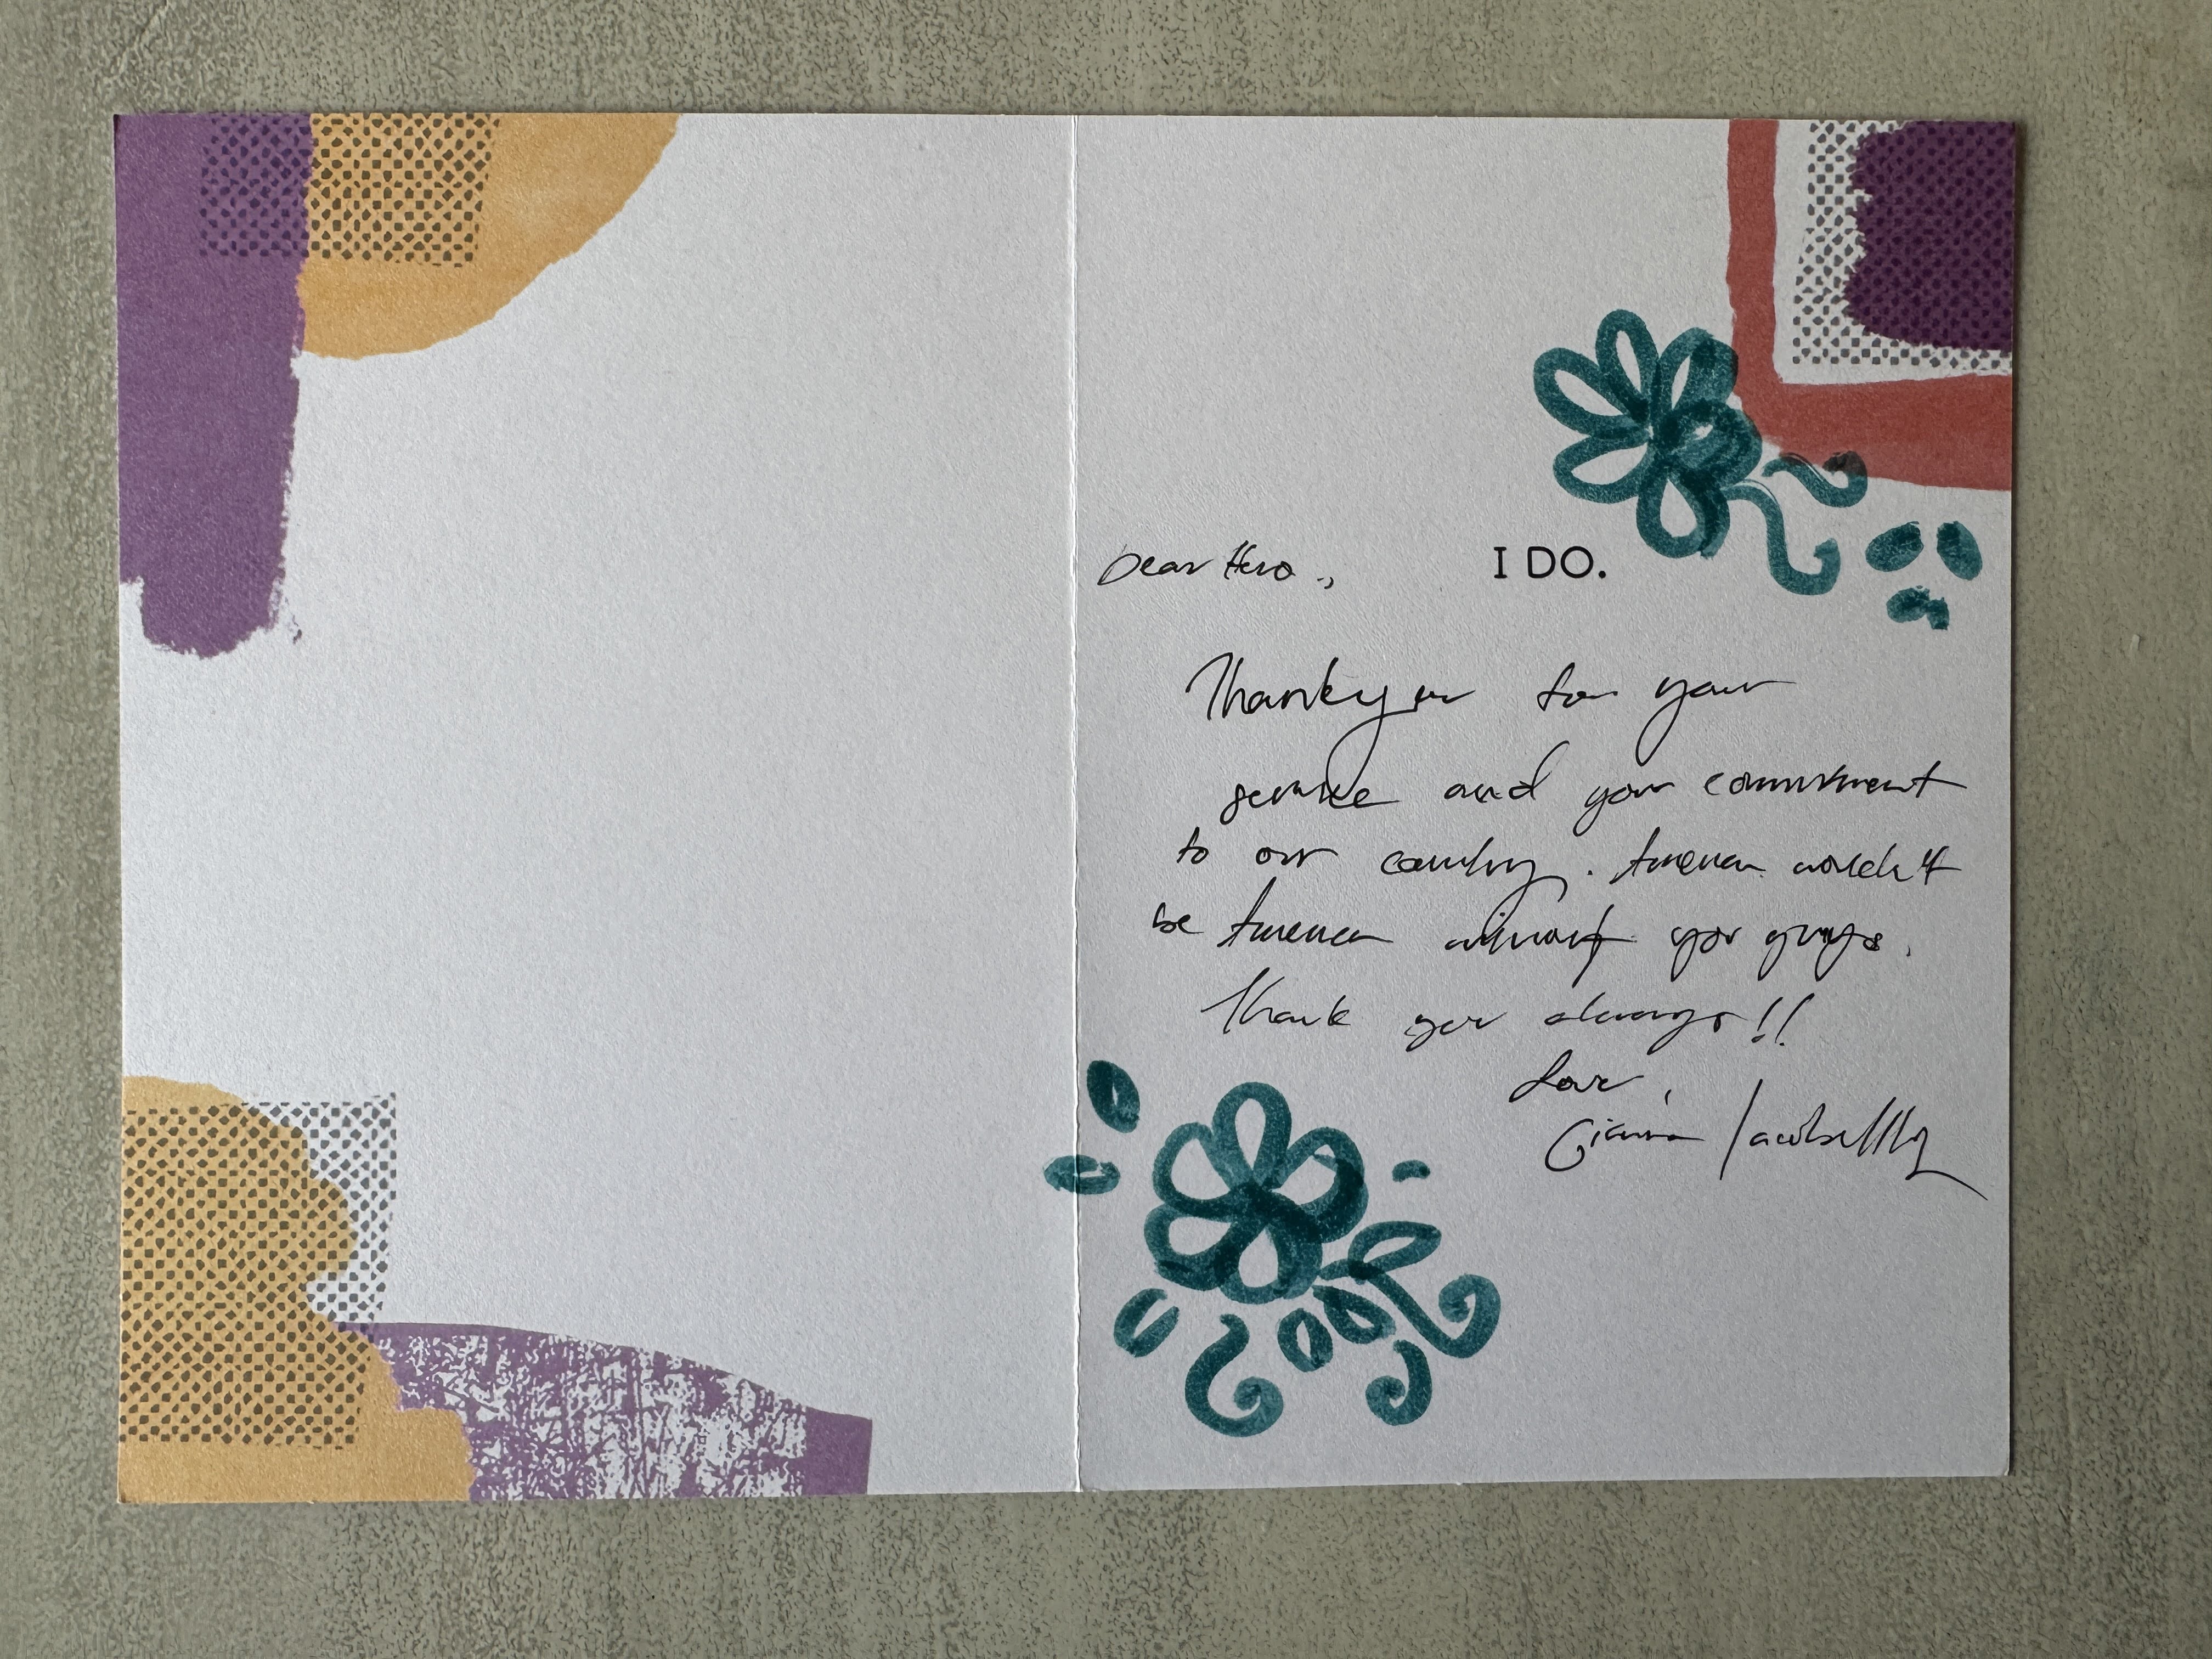 Dear Hero,
I DO.
Thank you for your
service and your commitment
to our country. America wouldn't
be America without you guys.
Thank you always!!
Love,
Gianna